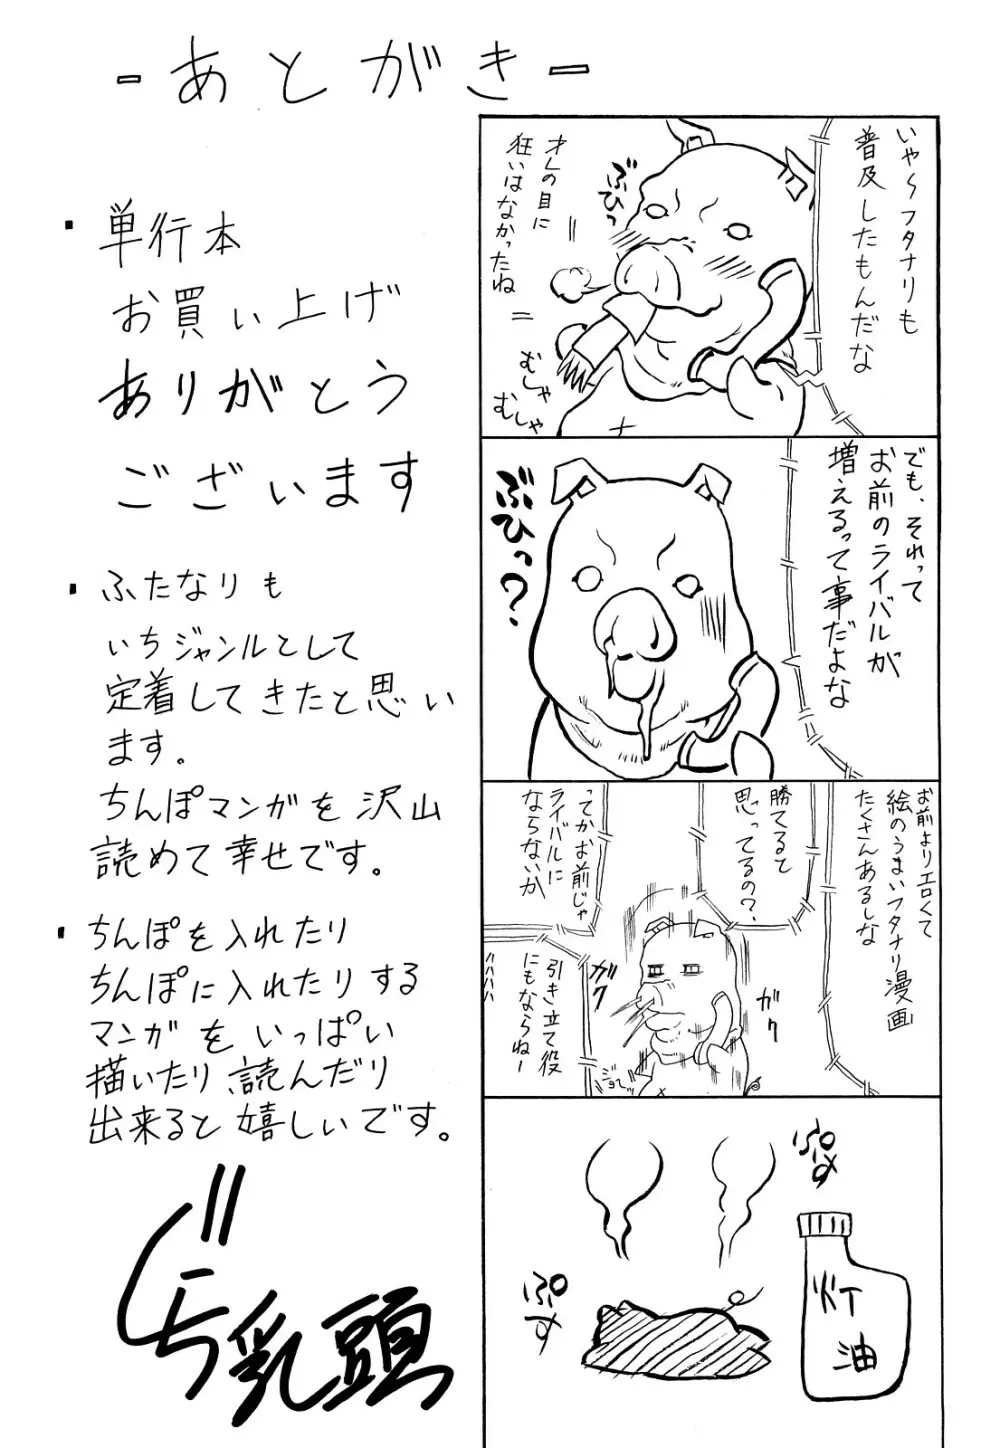 -あとがき-
・単行本
お買い上げ
ありがとう
ございます
・ふたなりも
いちジャンルとして
定着してきたと思い
ます。
ちんぽマンガを沢山
読めて幸せです。
・ちんぽを入れたり
ちんぽに入れたりする
マンガをいっぱい
描いたり、読んだり
出来ると嬉しいです。
乳頭
いや〜フタナリも
普及したもんだな
オレの目に
狂いはなかったね
ぶひっ
むしゃ
むしゃ
でも、それって
お前のライバルが
増えるって事だよな
ぶひっ?
お前よりエロくて
絵のうまいフタナリ漫画
たくさんあるしな
勝てると
思ってるの?
ってかお前じゃ
ライバルに
ならないか
引き立て役
にもならねー
ハハハハ
ガク
ガク
ぷす
ぷす
灯
油